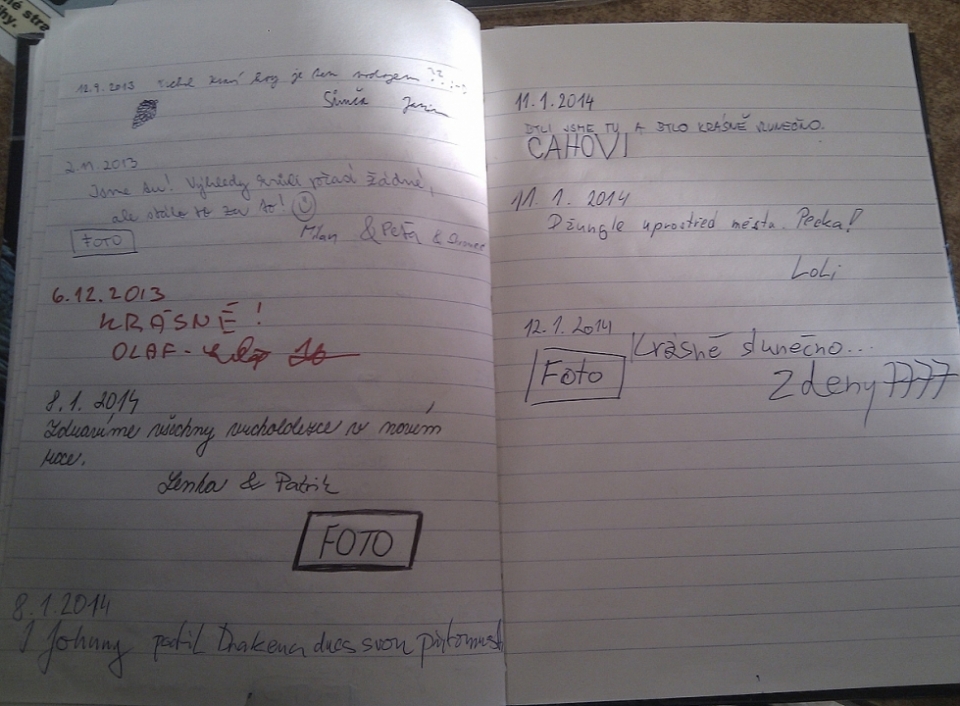 né stra
hy.
12.9.2013 je
Simča
2.11.2013
Jsme tu! Výhledy pořád žádné,
ale stálo to za to!
FOTO
Milan & Peťa &
6.12.2013
KRÁSNÉ!
OLAF -
8.1.2014
Zdravíme všechny vrcholovkce v novém
roce.
Lenka & Patrik
FOTO
8.1.2014
I Johnny poctil dnes svou
11.1.2014
BYLI JSME TU A BYLO KRÁSNĚ SLUNEČNO.
CAHOVI
11.1.2014
Džungle uprostřed města. Pecka!
Loli
12.1.2014
Foto
Krásně slunečno...
Zdeny7777